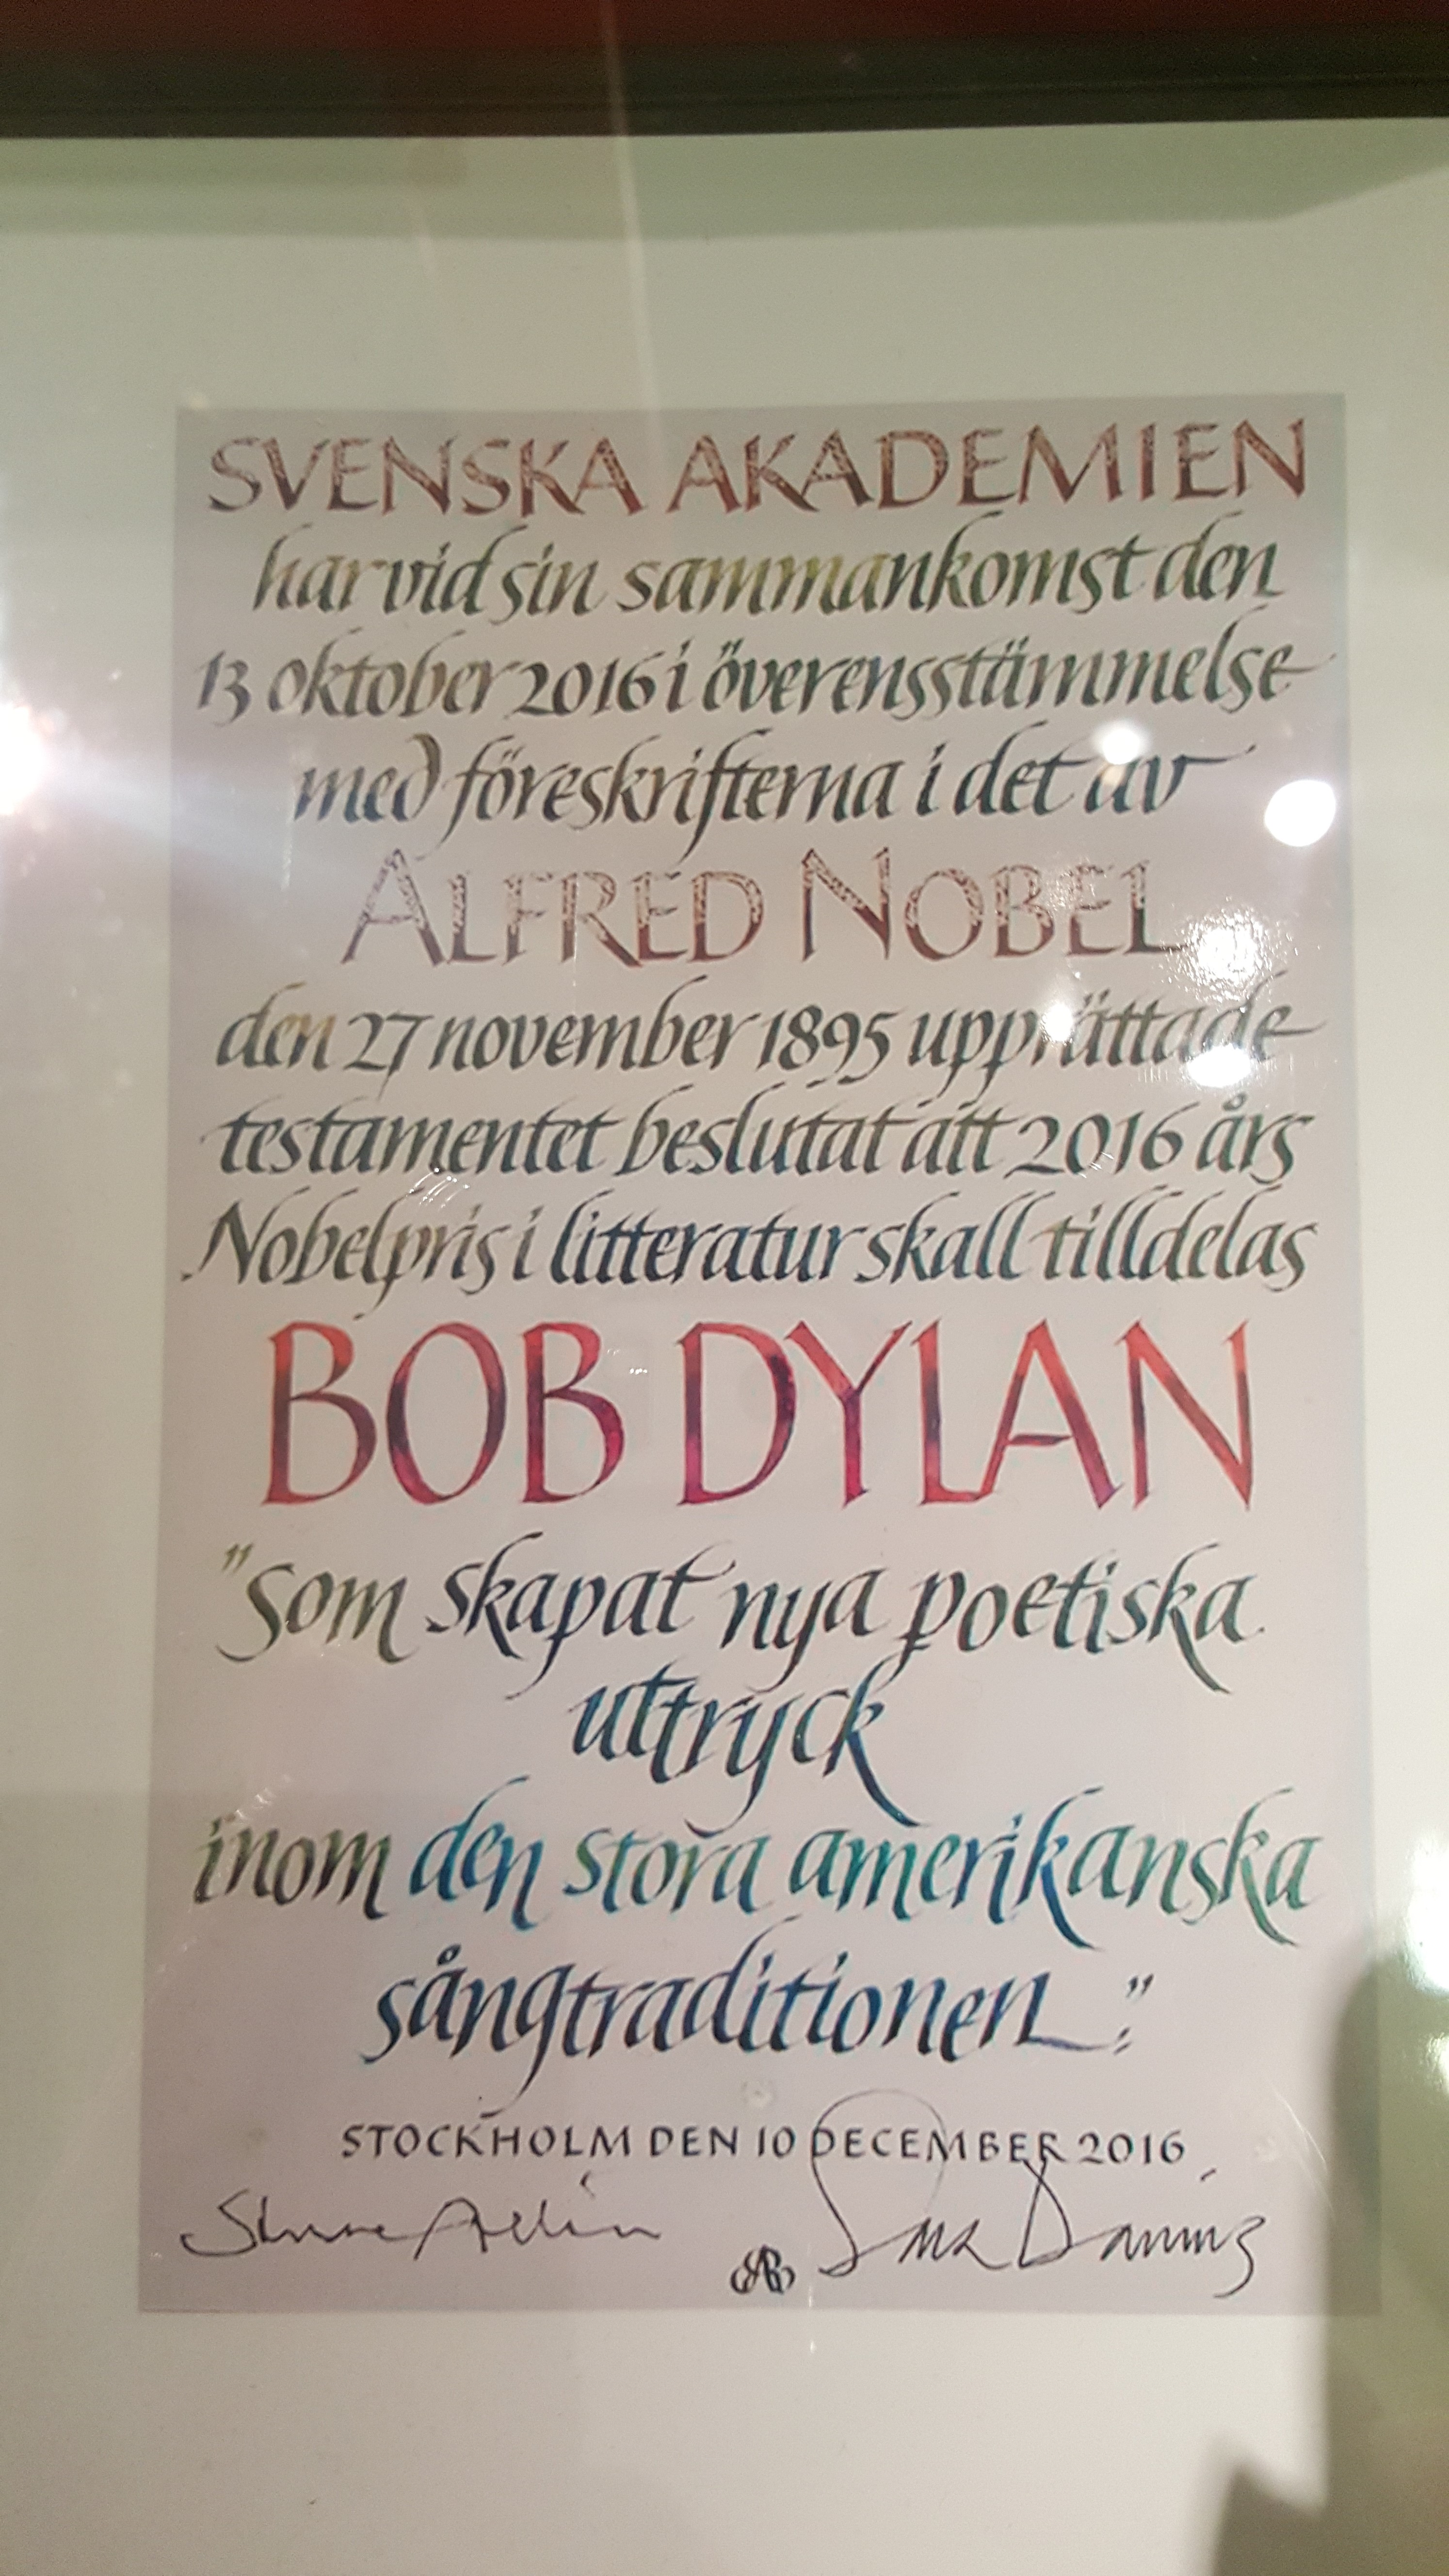 SVENSKA AKADEMIEN
har vid sin sammankomst den
13 oktober 2016 i överensstämmelse
med föreskrifterna i det av
ALFRED NOBEL
den 27 november 1895 upprättade
testamentet beslutat att 2016 års
Nobelpris i litteratur skall tilldelas
BOB DYLAN
"som skapat nya poetiska
uttryck
inom den stora amerikanska
sångtraditionen."
STOCKHOLM DEN 10 DECEMBER 2016
Sara Danius